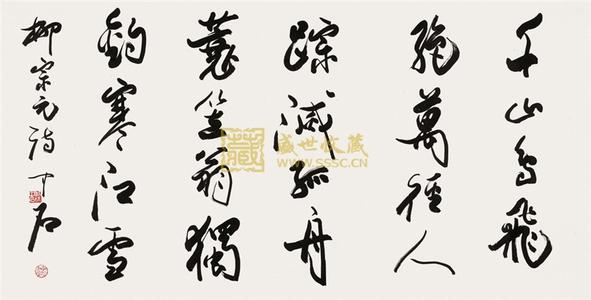 千山鳥飛
絶萬徑人
踪滅孤舟
蓑笠翁獨
釣寒江雪
柳宗元詩中石
藏
盛世收藏
WWW.SSSC.CN